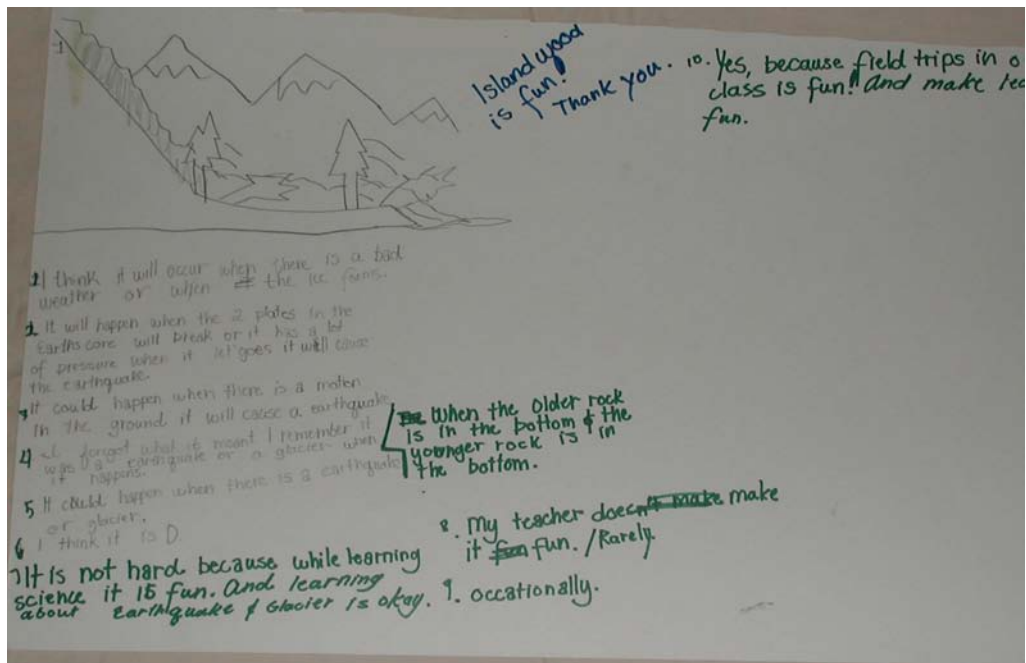 Islandwood
is fun!
Thank you.
10. Yes, because field trips in o
class is fun! And make lea
fun.
1 I think it will occur when there is a bad
weather or when the ice forms.
2 It will happen when the 2 plates in the
Earths core will break or it has a lot
of pressure when it let goes it will cause
the earthquake.
3 It could happen when there is a moten
In the ground it will cause a earthquake
4 I forgot what it meant I remember it
was a earthquake or a glacier when
it happens.
When the older rock
is in the bottom & the
younger rock is in
the bottom.
5 It could happen when there is a earthquake
or glacier.
6 I think it is D.
7 It is not hard because while learning
science it is fun. And learning
about Earthquake & Glacier is okay.
8. My teacher doesn't make make
it fun fun. /Rarely.
9. occationally.